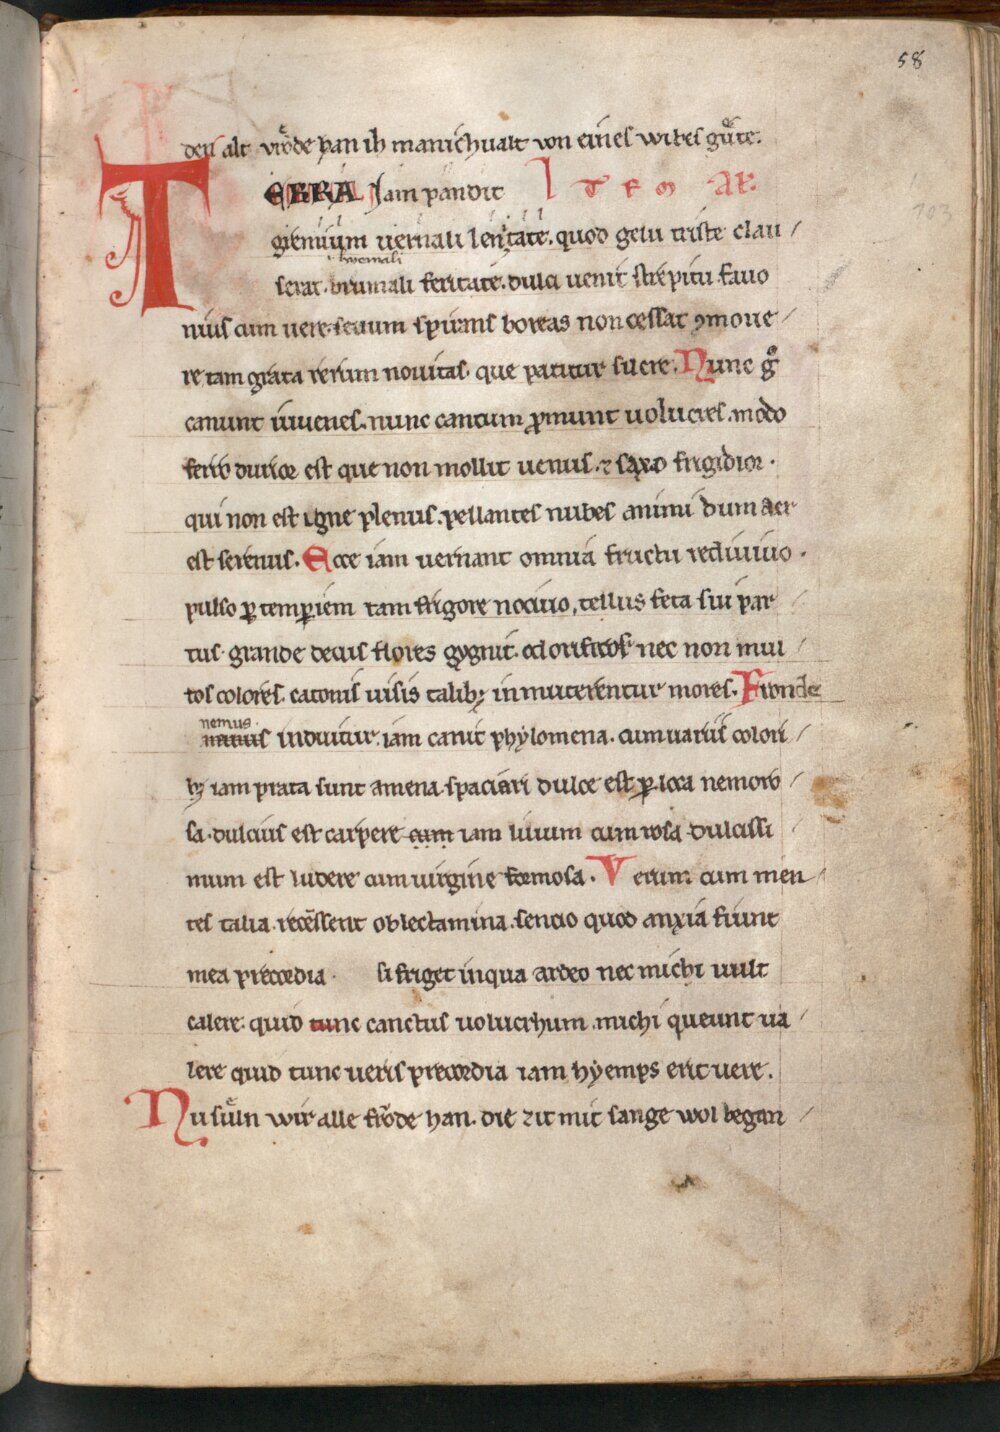 58
den alt vrͦde pan ih manichualt von eines wibes guͤte.
TERRA Iam pandit ITEM AL.
gremium uernali lenitate. quod gelu triste clau
hyemali
serat. brumali feritate. dulci uenit strepitu fauo
103
nius cum uere. seuum spirans boreas non cessat ꝯmoue
re tam grata rerum nouitas. que patitur silere. Nunc gͦ
canunt iuuenes. nunc cantum ꝓmunt uolucres. modo
ferro durior est que non mollit uenus. ⁊ saxo frigidior.
qui non est igne plenus. pellantes nubes animi dum aer
est serenus. Ecce iam uernant omnia fructu rediuiuo.
pulso ꝑ temꝑiem tam frigore nociuo, tellus feta sui par
tus grande decus flores gygnit. odoriferos nec non mul
tos colores. catonis uisis talibꝫ inmuterentur mores. Fronde
nemus
induitur. iam canit phylomena. cum uariis colori
bꝫ iam prata sunt amena. spaciari dulce est ꝑ loca nemoro
sa. dulcius est carpere cum iam lilium cum rosa dulcissi
mum est ludere cum uirgine formosa. Verum cum men
tes talia recẽssent oblectamina. sencio quod anxia fiunt
mea precordia. si friget in qua ardeo nec michi uult
calere. quid tunc canctus uolucrhum michi queunt ua
lere quid tunc ueris precordia iam hyemps erit uere.
Nu suͤln wir alle frͦde han. die zit mit sange wol began